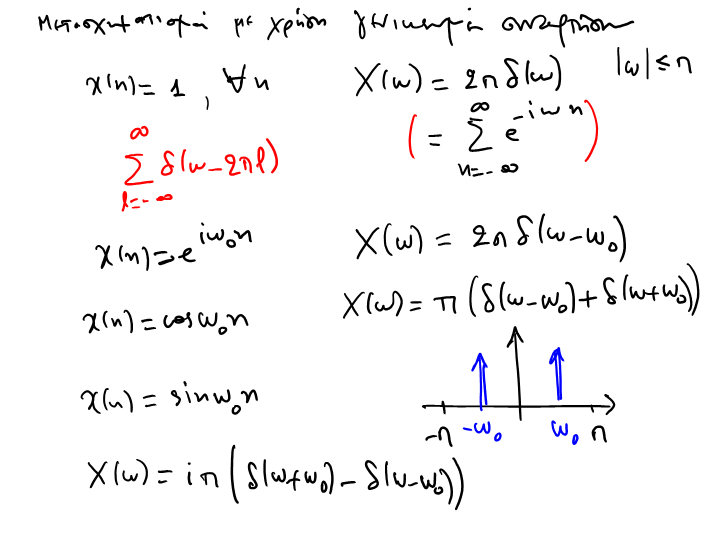 Μετασχηματισμοί με χρήση γενικευμένων συναρτήσεων
x(n) = 1 , ∀n X(ω) = 2π δ(ω) |ω| ≤ π
( = ∑_{n=-∞}^{∞} e^{-iωn} )
∑_{l=-∞}^{∞} δ(ω-2πl)
x(n) = e^{iω₀n} X(ω) = 2π δ(ω-ω₀)
x(n) = cosω₀n X(ω) = π (δ(ω-ω₀)+δ(ω+ω₀))
x(n) = sinω₀n
-π -ω₀ ω₀ π
X(ω) = iπ (δ(ω+ω₀) - δ(ω-ω₀))